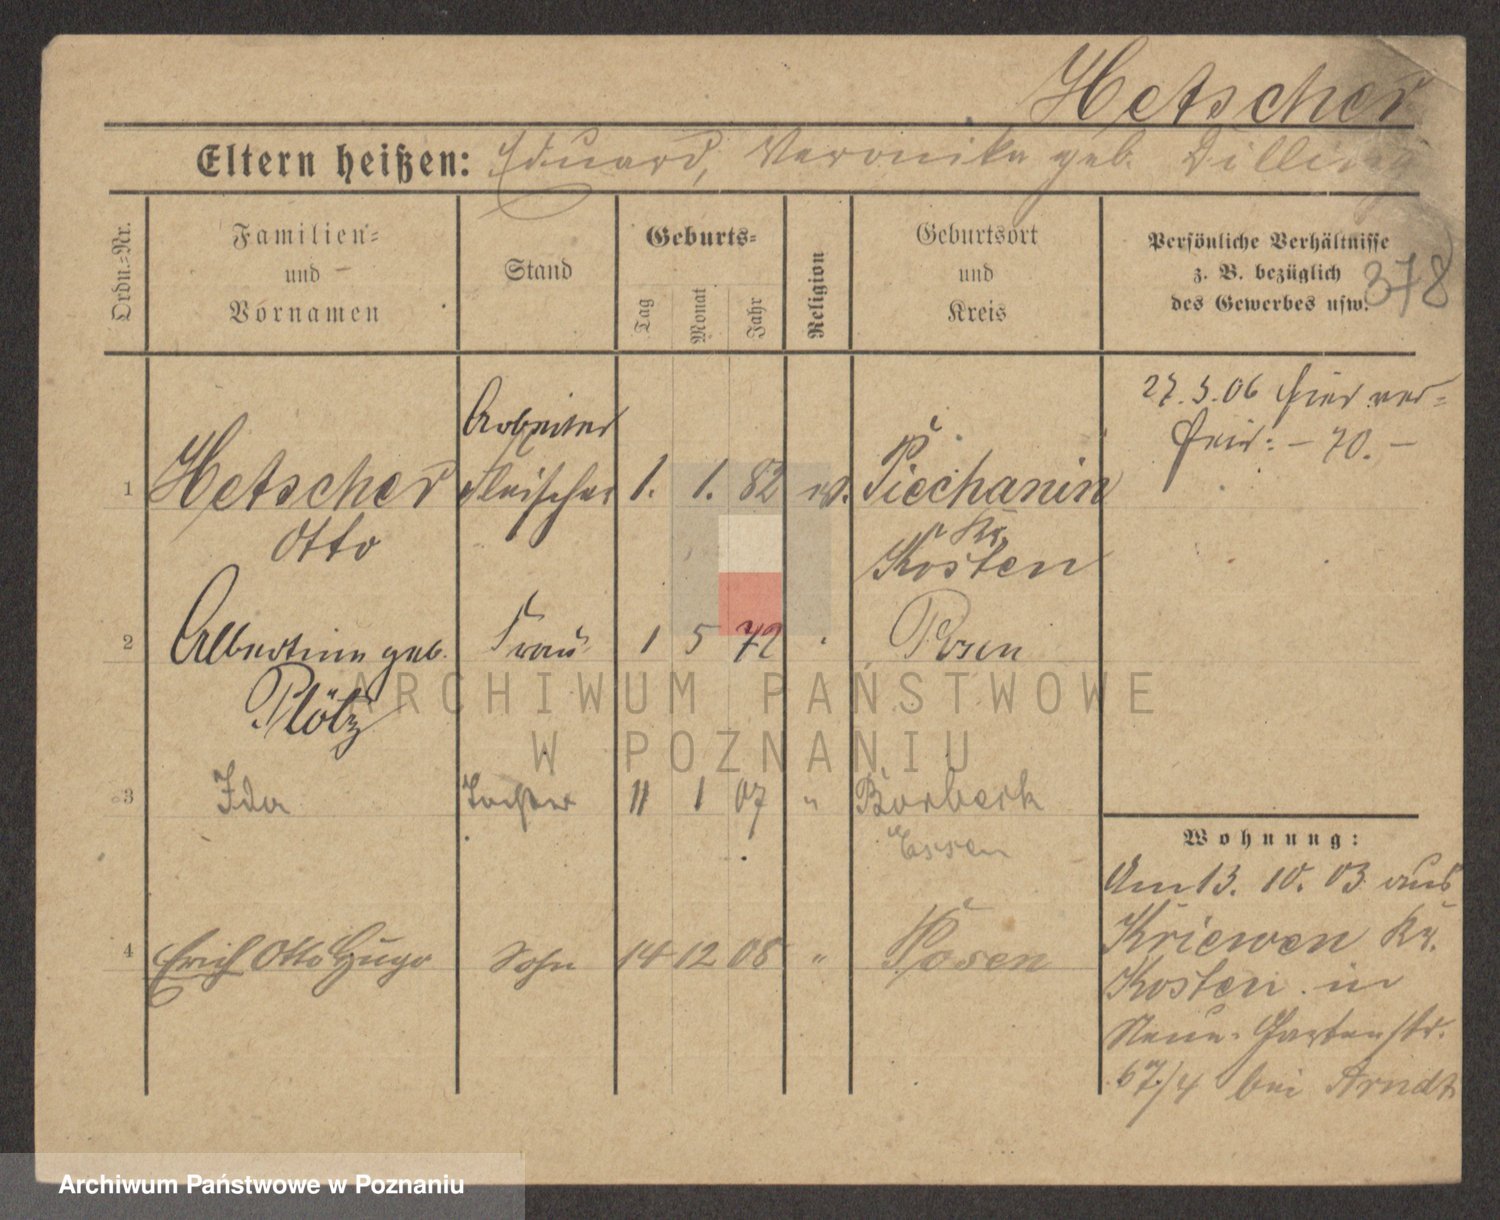 Hetscher
Eltern heißen: Eduard, Veronika geb.
Ordn.-Nr.
Familien-
und
Vornamen
Stand
Geburts-
Tag
Monat
Jahr
Religion
Geburtsort
und
Kreis
Persönliche Verhältnisse
z. B. bezüglich
des Gewerbes usw.
378
27. 3. 06 hier ver-
heir: - 70. -
Arbeiter
1 Hetscher Fleischer 1. 1. 82 ev. Piechanin
Otto
Kr.
Kosten
2 Albertine geb. Frau 1 5 72 " Posen
Plötz
3 Ida Tochter 11 1 07 " Borbeck
Essen
4 Erich Otto Hugo Sohn 14 12 08 " Posen
Wohnung:
Am 13. 10. 03 aus
Kriewen Kr.
Kosten in
Neue Gartenstr.
67/4 bei Arndt
ARCHIWUM PAŃSTWOWE
W POZNANIU
Archiwum Państwowe w Poznaniu